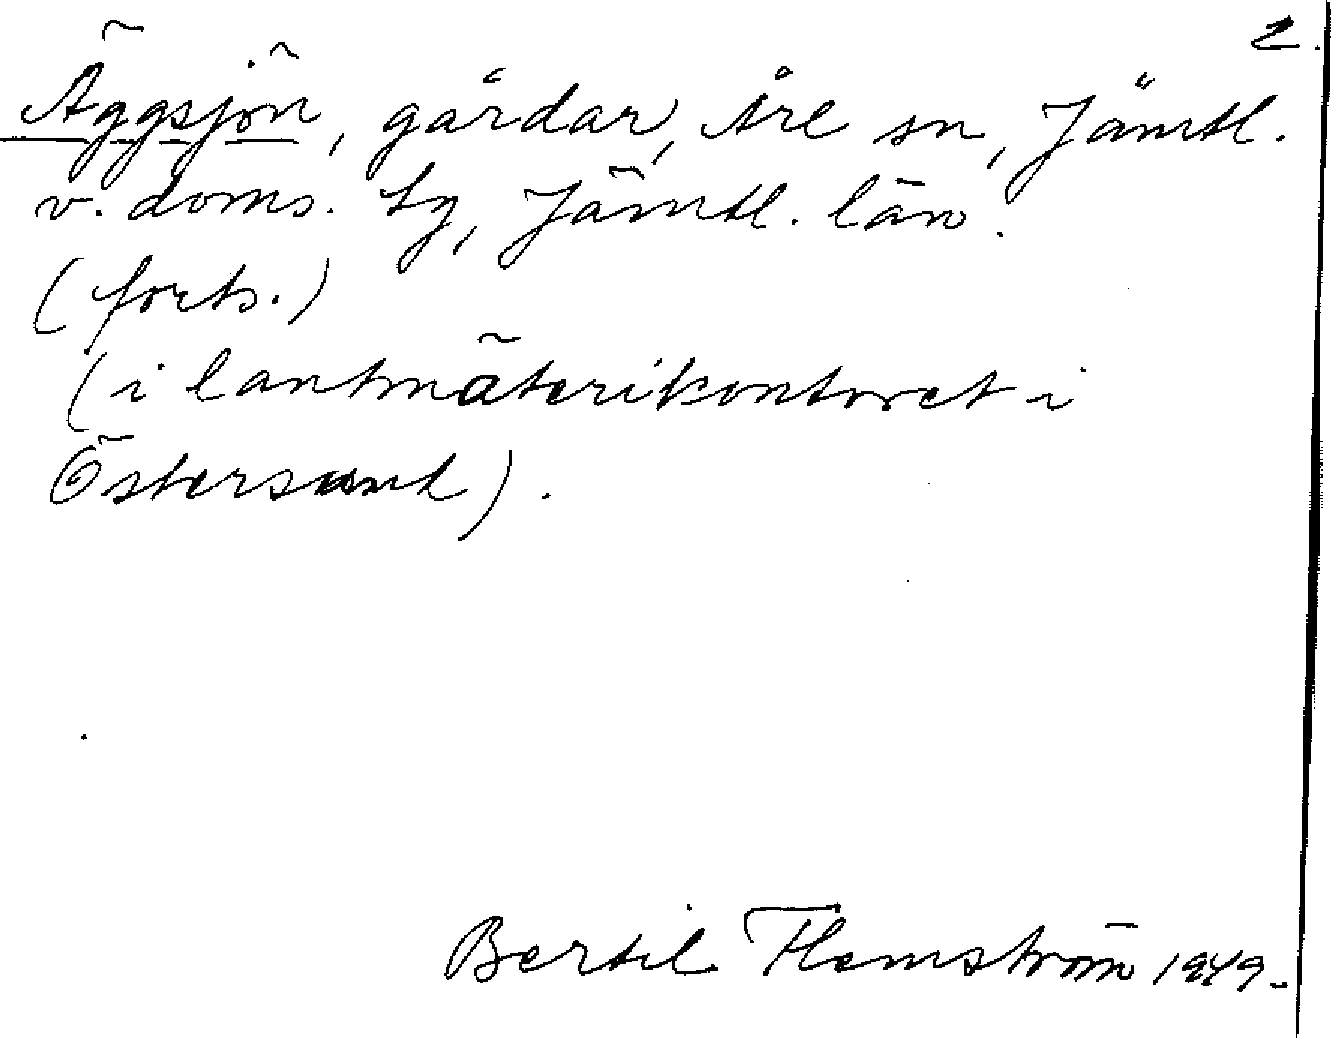 2.
Äggsjön, gårdar, Åre sn, Jämtl.
v. doms. tg, Jämtl. län.
(forts.)
(i lantmäterikontoret i
Östersund).
Bertil Flemström 1949.